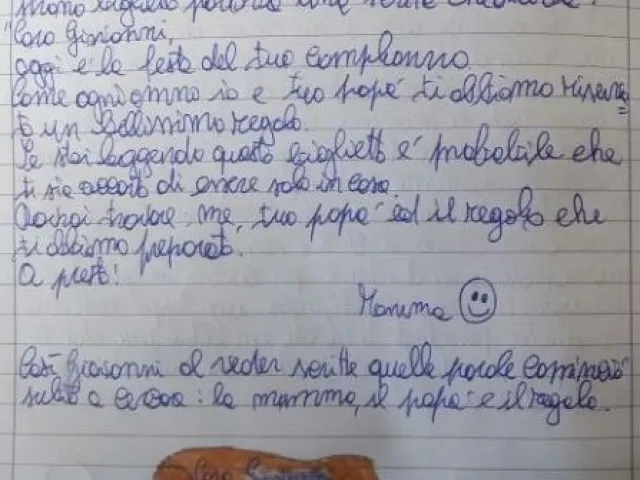 "Caro Giovanni,
oggi è la festa del tuo compleanno.
Come ogni anno io e tuo papà ti abbiamo riserva=
to un bellissimo regalo.
Se stai leggendo questo bigliettto è probabile che
ti sia accorto di essere solo in casa.
Dovrai trovare me, tuo papà ed il regalo che
ti abbiamo preparato.
A presto!
Mamma
Così Giovanni al veder scritte quelle parole cominciò
subito a cercare: la mamma, il papà e il regalo.
Caro